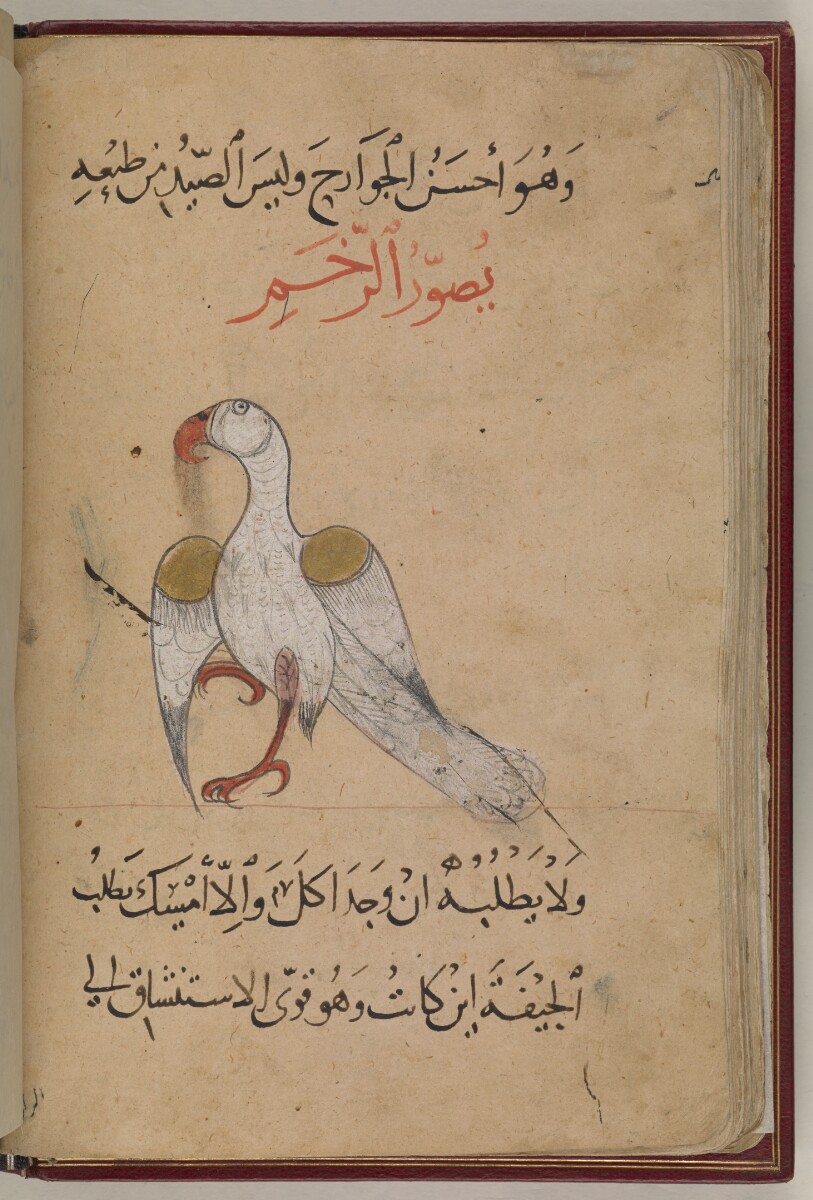 وَهُوَ أحسَنُ الجَوَارحِ وَليسَ الصّيدُ مِن طبْعِهِ
يُصوّرُ الرّخَمِ
وَلاَ يَطلبُهُ انْ وَجَدَ اكلَ وَاِلّا أمْسِكَ يَطلبُ
الجيْفَةَ اينَ كانتْ وَهُو قويّ الاستنشاق الي